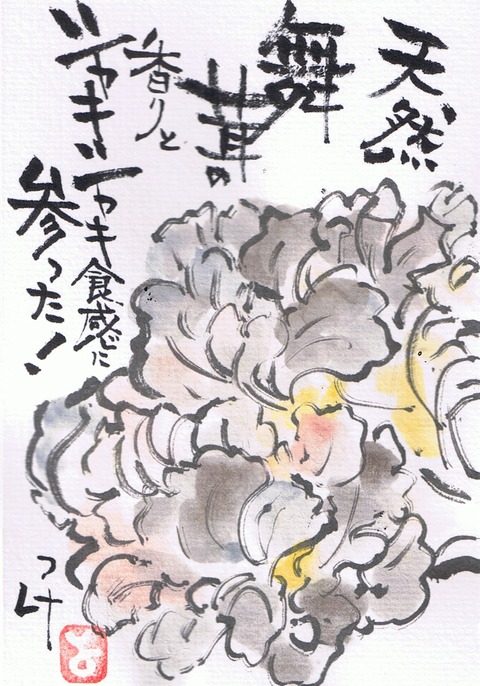 天然
舞
茸の
香りと
シャキ
シャキ食感に
参った!